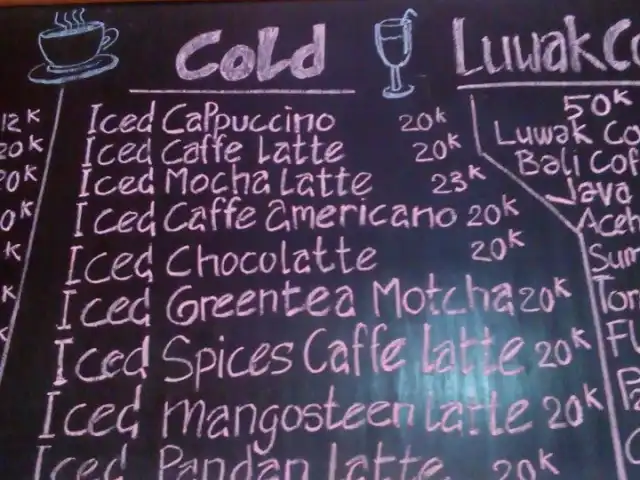 Cold
Iced Cappuccino 20K
Iced Caffe Latte 20K
Iced Mocha Latte 23K
Iced Caffe Americano 20K
Iced Chocolatte 20K
Iced Greentea Motcha 20K
Iced Spices Caffe latte 20K
Iced mangosteen latte 20K
Iced Pandan latte 20K
12K
20K
Luwak Co
50K
Luwak Co
Bali Cof
Java
Aceh
Sum